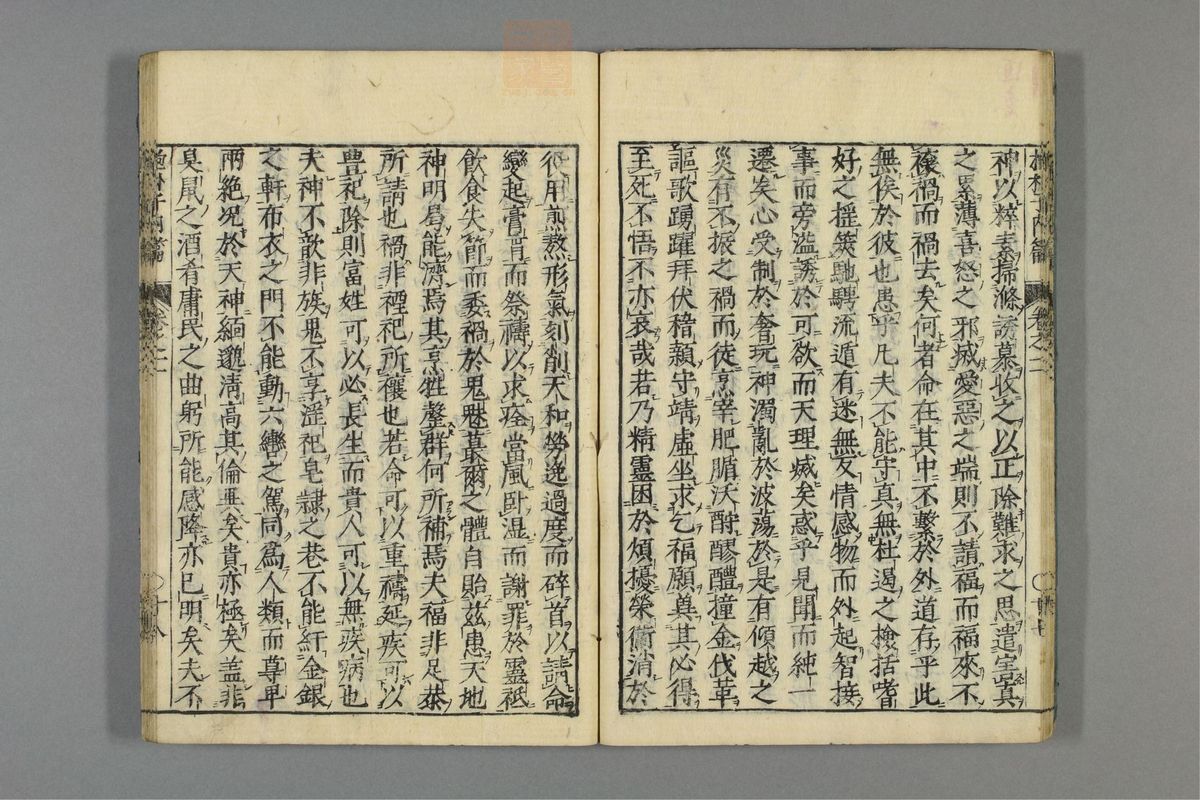 神以粹素掃滌誘慕收之以正除難求之思遣害真
之累薄喜怒之邪滅愛惡之端則不請福而福來不
禳禍而禍去矣何者命在其中不繫於外道存乎此
無俟於彼也患乎凡夫不能守真無杜遏之檢括嗜
好之搖奬馳騁流遁有迷無反情感物而外起智接
事而旁溢誘於可欲而天理滅矣惑乎見聞而純一
遷矣心受制於奢玩神濁亂於波蕩於是有傾越之
災有不振之禍而徒烹宰肥腯沃酹醪醴撞金伐革
謳歌踴躍拜伏稽顙守靖虛坐求乞福願冀其必得
至死不悟不亦哀哉若乃精靈困於煩擾榮衞消於
役用煎熬形氣刻削天和勞逸過度而碎首以請命
變起膏肓而祭禱以求痊當風卧濕而謝罪於靈祗
飲食失節而委禍於鬼魅蕞爾之體自貽茲患天地
神明曷能濟焉其烹牲罄群何所補焉夫福非足恭
所請也禍非禋祀所禳也若命可以重禱延疾可以
豊祀除則富姓可以必長生而貴人可以無疾病也
夫神不歆非族鬼不享淫祀皂隷之巷不能紆金銀
之軒布衣之門不能動六轡之駕同爲人類而尊卑
兩絶况於天神緬邈清高其倫異矣貴亦極矣盖非
臭鼠之酒肴庸民之曲躬所能感降亦已明矣夫不
抱朴子內篇 卷之二 十八